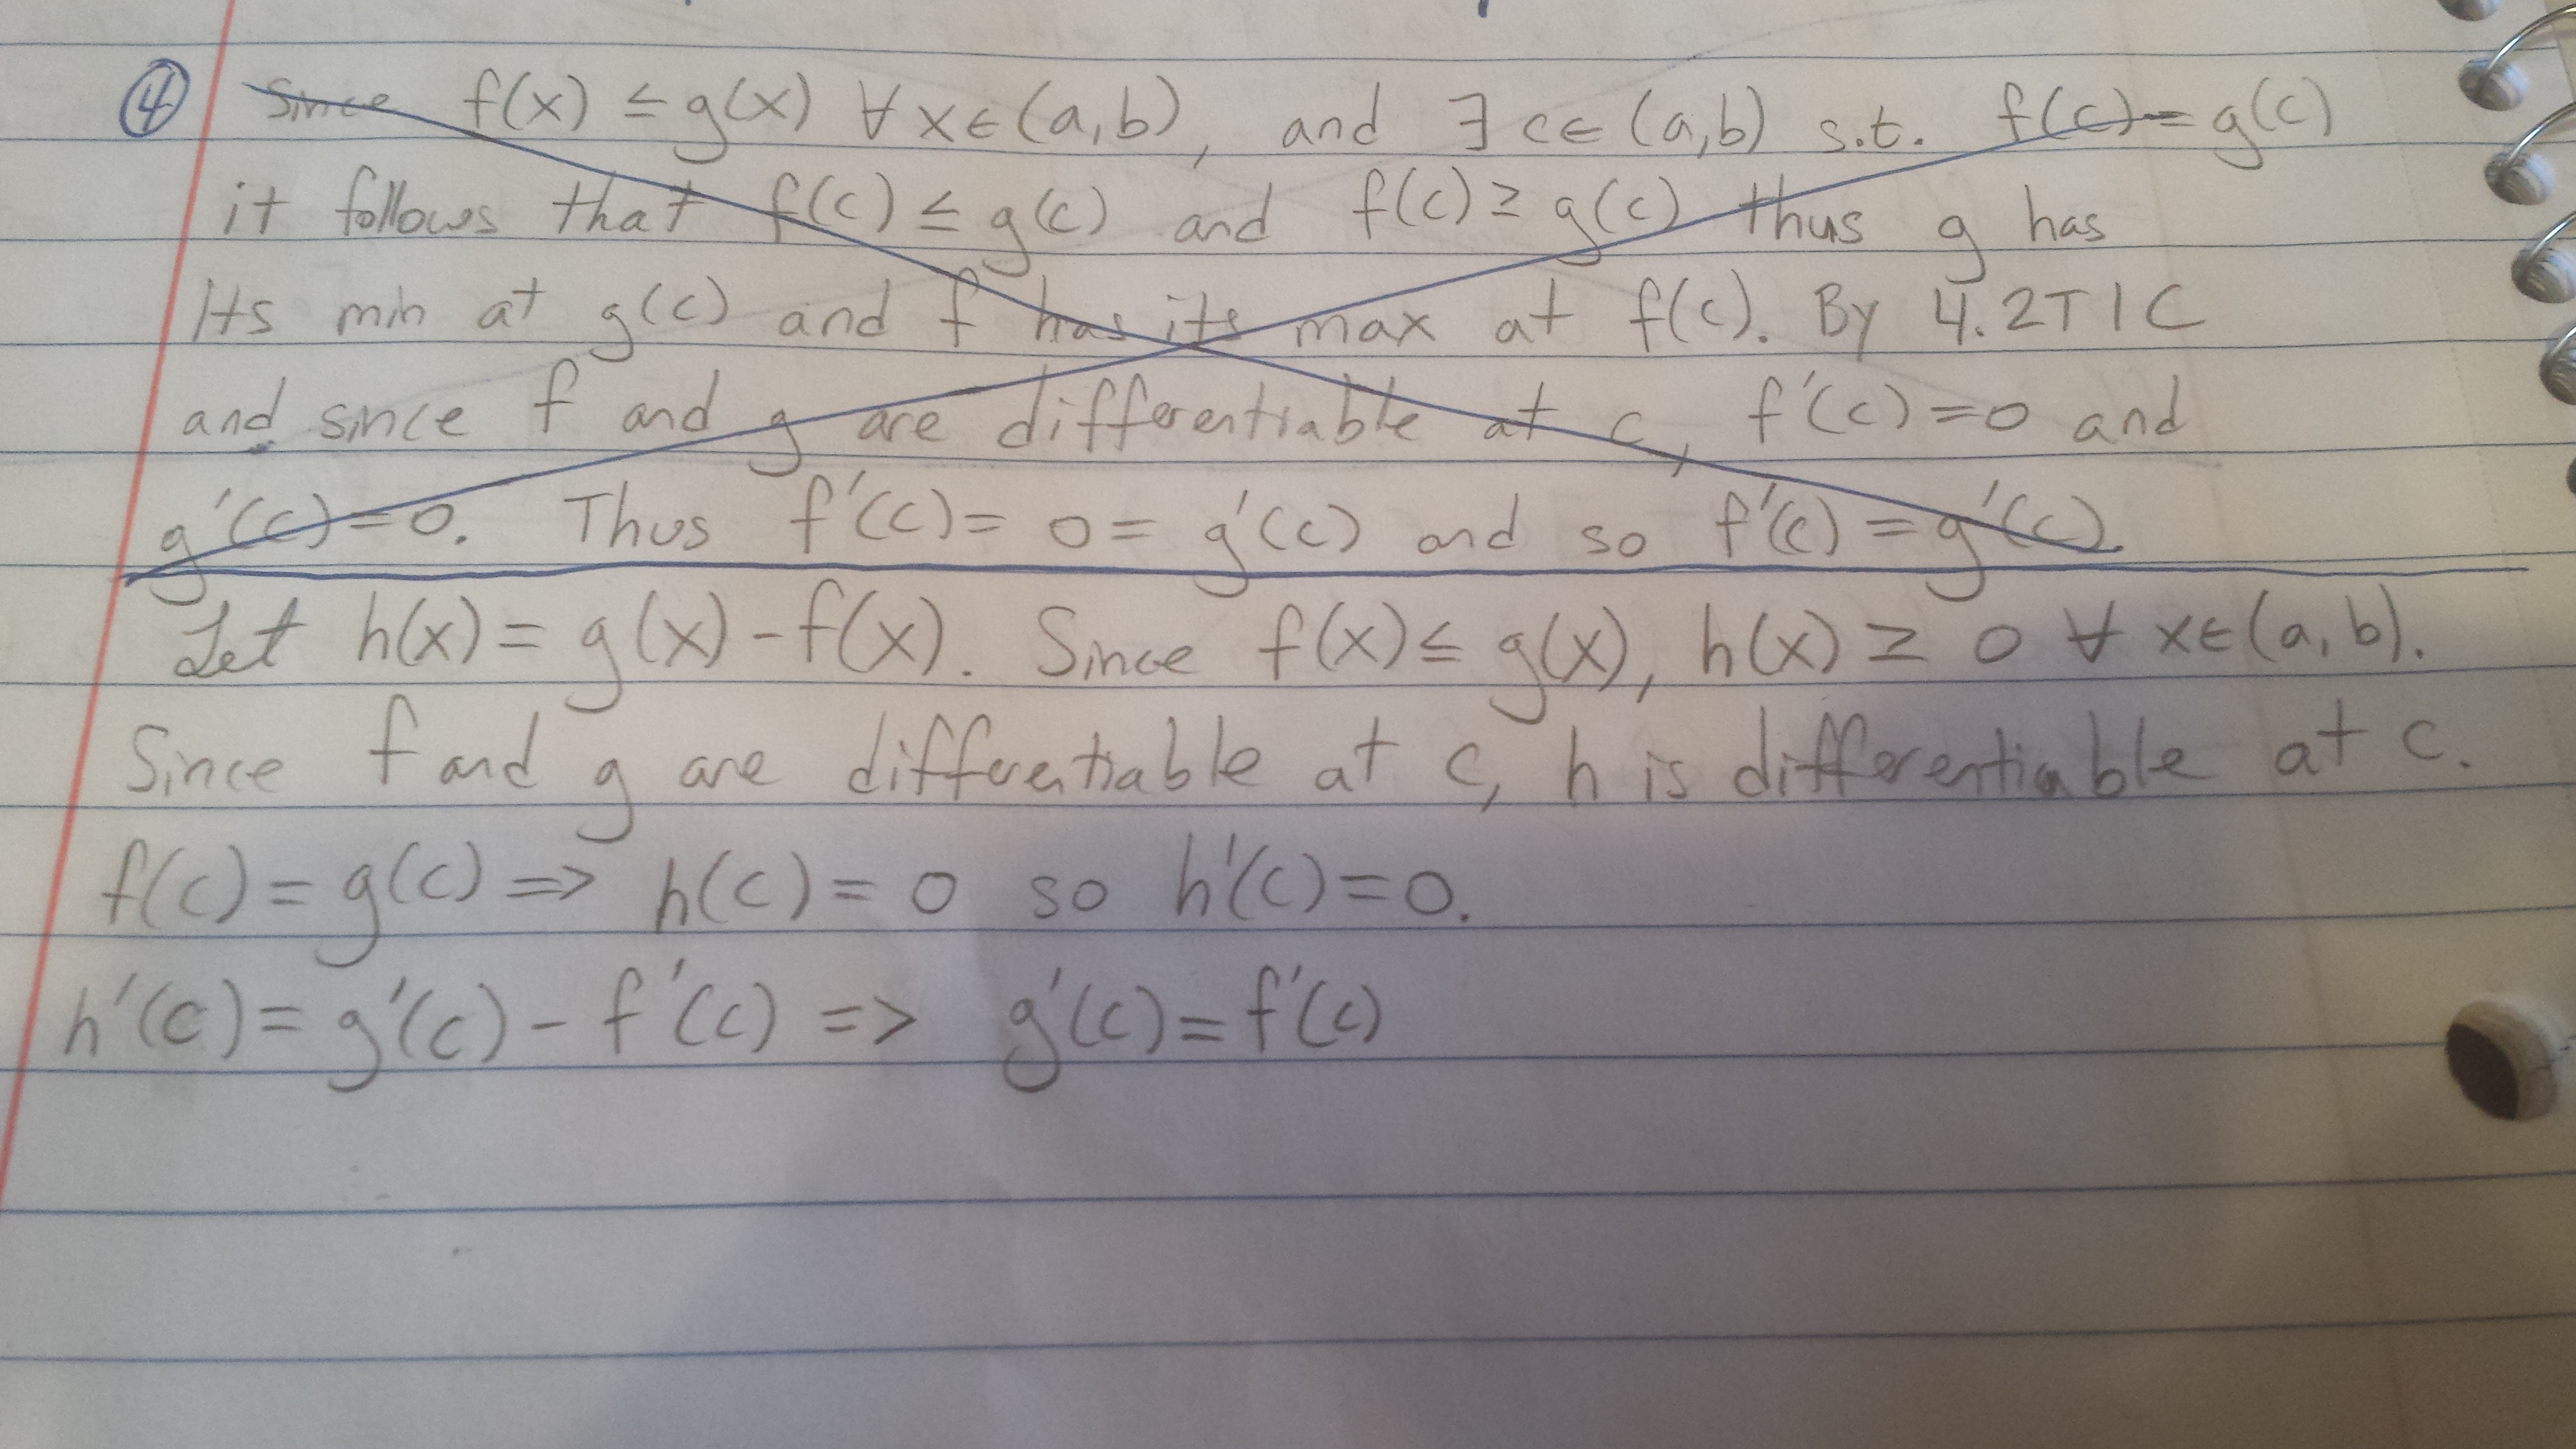 ④ Since f(x) ≤ g(x) ∀ x∈(a,b), and ∃ c∈ (a,b) s.t. f(c)=g(c)
it follows that f(c) ≤ g(c) and f(c) ≥ g(c) thus g has
its min at g(c) and f has its max at f(c). By 4.2T1C
and since f and g are differentiable at c, f'(c)=0 and
g'(c)=0. Thus f'(c)= 0 = g'(c) and so f'(c) = g'(c)
Let h(x)= g(x)-f(x). Since f(x)≤ g(x), h(x) ≥ 0 ∀ x∈(a,b).
Since f and g are differentiable at c, h is differentiable at c.
f(c)=g(c) => h(c)= 0 so h'(c)=0.
h'(c)= g'(c) - f'(c) => g'(c)=f'(c)